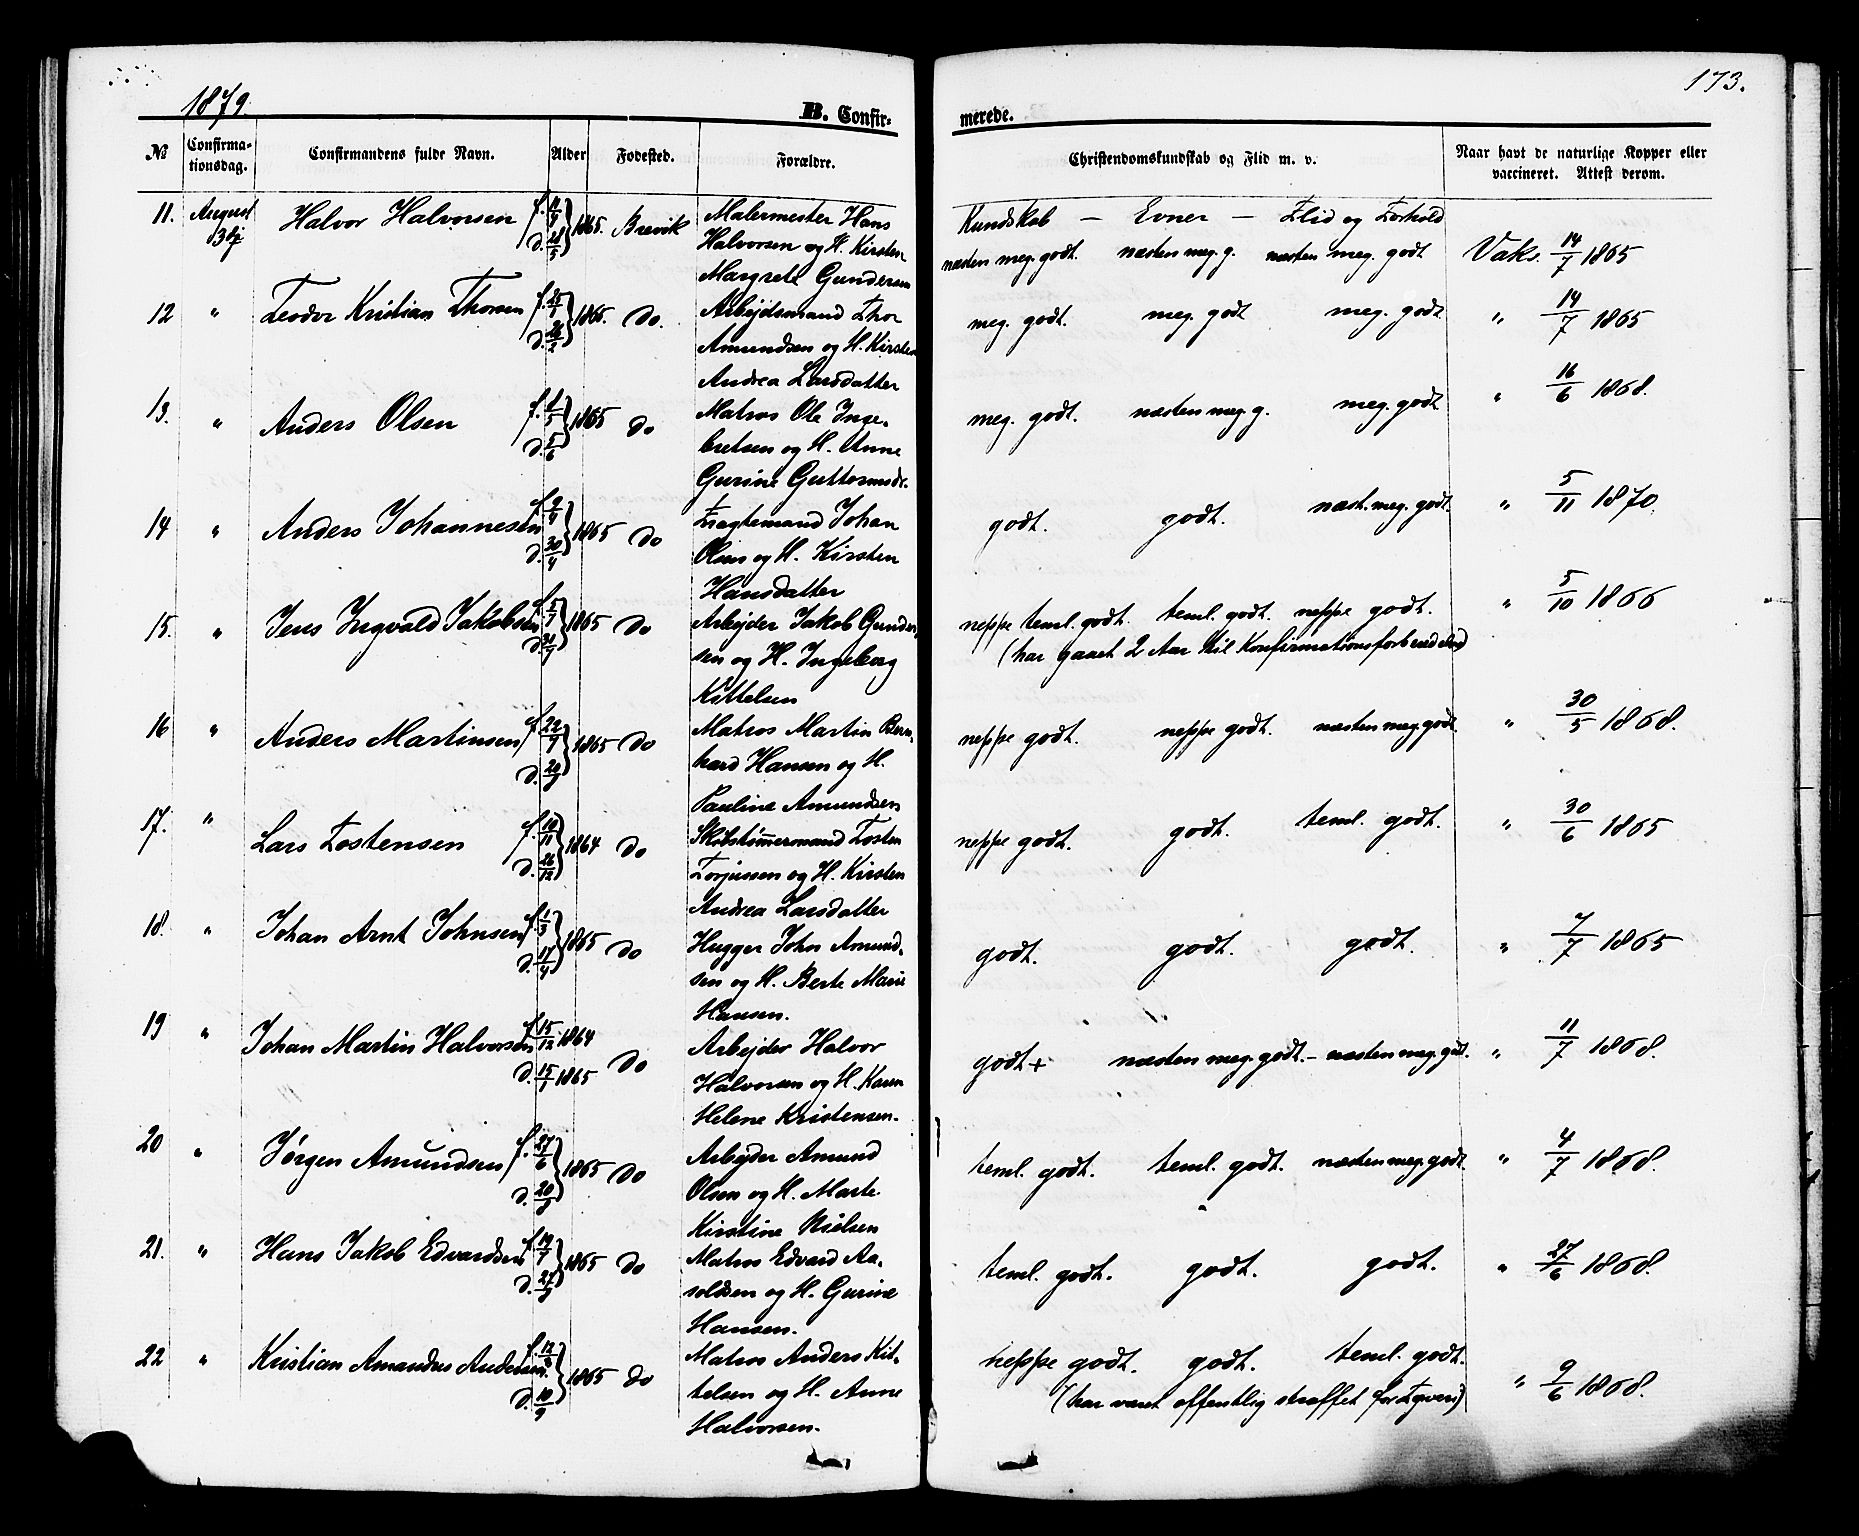 1879.
173.
B. Confir-
merede.
No
Confirma-
tionsdag.
Confirmandens fulde Navn.
Alder
Fødested.
Forældre.
Christendomskundskab og Flid m. v.
Naar havt de naturlige Kopper eller
vaccineret. Attest derom.
11. August 31j Halvor Halvorsen 1865. Brevik Malermester Hans
Halvorsen og H. Kirsten
Margrete Gundersen
Kundskab — Evner — Flid og Forhold
næsten meg. godt. næsten meg. g. næsten meg. godt Vaks. 14/7 1865
12 " Teodor Kristian Thorsen 1865. Do. Arbejdsmand Thor
Amundsen og H. Kirsten
Andrea Larsdatter
meg. godt. meg. godt meg. godt " 14/7 1865
13. " Anders Olsen 1865 Do Matros Ole Inge-
bretsen og H. Anne
Gurine Guttormsdr.
meg. godt. næsten meg. g. meg. godt " 16/6 1868.
14 " Anders Johannesen d. 30/4 1865 Do Fragtemand Johan
Olsen og H. Kirsten
Hansdatter
godt. godt. næst. meg. godt. " 5/11 1870.
15. " Jens Ingvald Jakobsen 1865 Do Arbejder Jakob Gunder-
sen og H. Ingeborg
Kittelsen
neppe teml. godt. teml. godt. neppe godt. " 5/10 1866
(har gaaet 2 Aar til Konfirmationsforberedelse)
16 " Anders Martinsen 1865 Do Matros Martin Bern-
hard Hansen og H.
Pauline Amundsen
neppe godt. neppe godt. næsten meg. godt. " 30/5 1868.
17. " Lars Tostensen f. 19/11 d. 26/12 1864 Do Skibstømmermand Tosten
Torjussen og H. Kirsten
Andrea Larsdatter
neppe godt. godt. teml. godt. " 30/6 1865
18. " Johan Arnt Johnsen f. 1/3 d. 17/4 1865 Do Hugger John Amund-
sen og H. Berte Marie
Hansen.
godt. godt. godt. " 7/7 1865
19 " Johan Martin Halvorsen f. 15/12 1864 d. 15/1 1865 Do Arbejder Halvor
Halvorsen og H. Karen
Helene Kristensen.
godt + næsten meg. godt. – næsten meg. godt. " 11/7 1868.
20 " Jørgen Amundsen f. 27/6 1865 Do Arbejder Amund
Olsen og H. Marte
Kirstine Nielsen
teml. godt. teml. godt. næsten meg. godt. " 4/7 1868.
21. " Hans Jakob Edvardsen f. 19/7 1865 Do Matros Edvard Aa-
soldsen og H. Gurine
Hansen.
teml. godt. godt. godt. " 27/6 1868.
22 " Kristian Amandus Andersen d. 10/9 1865 do Matros Anders Kit-
telsen og H. Anne
Halvorsen.
neppe godt. godt. teml. godt. " 9/6 1868.
(har været offentlig straffet for Tyveri)